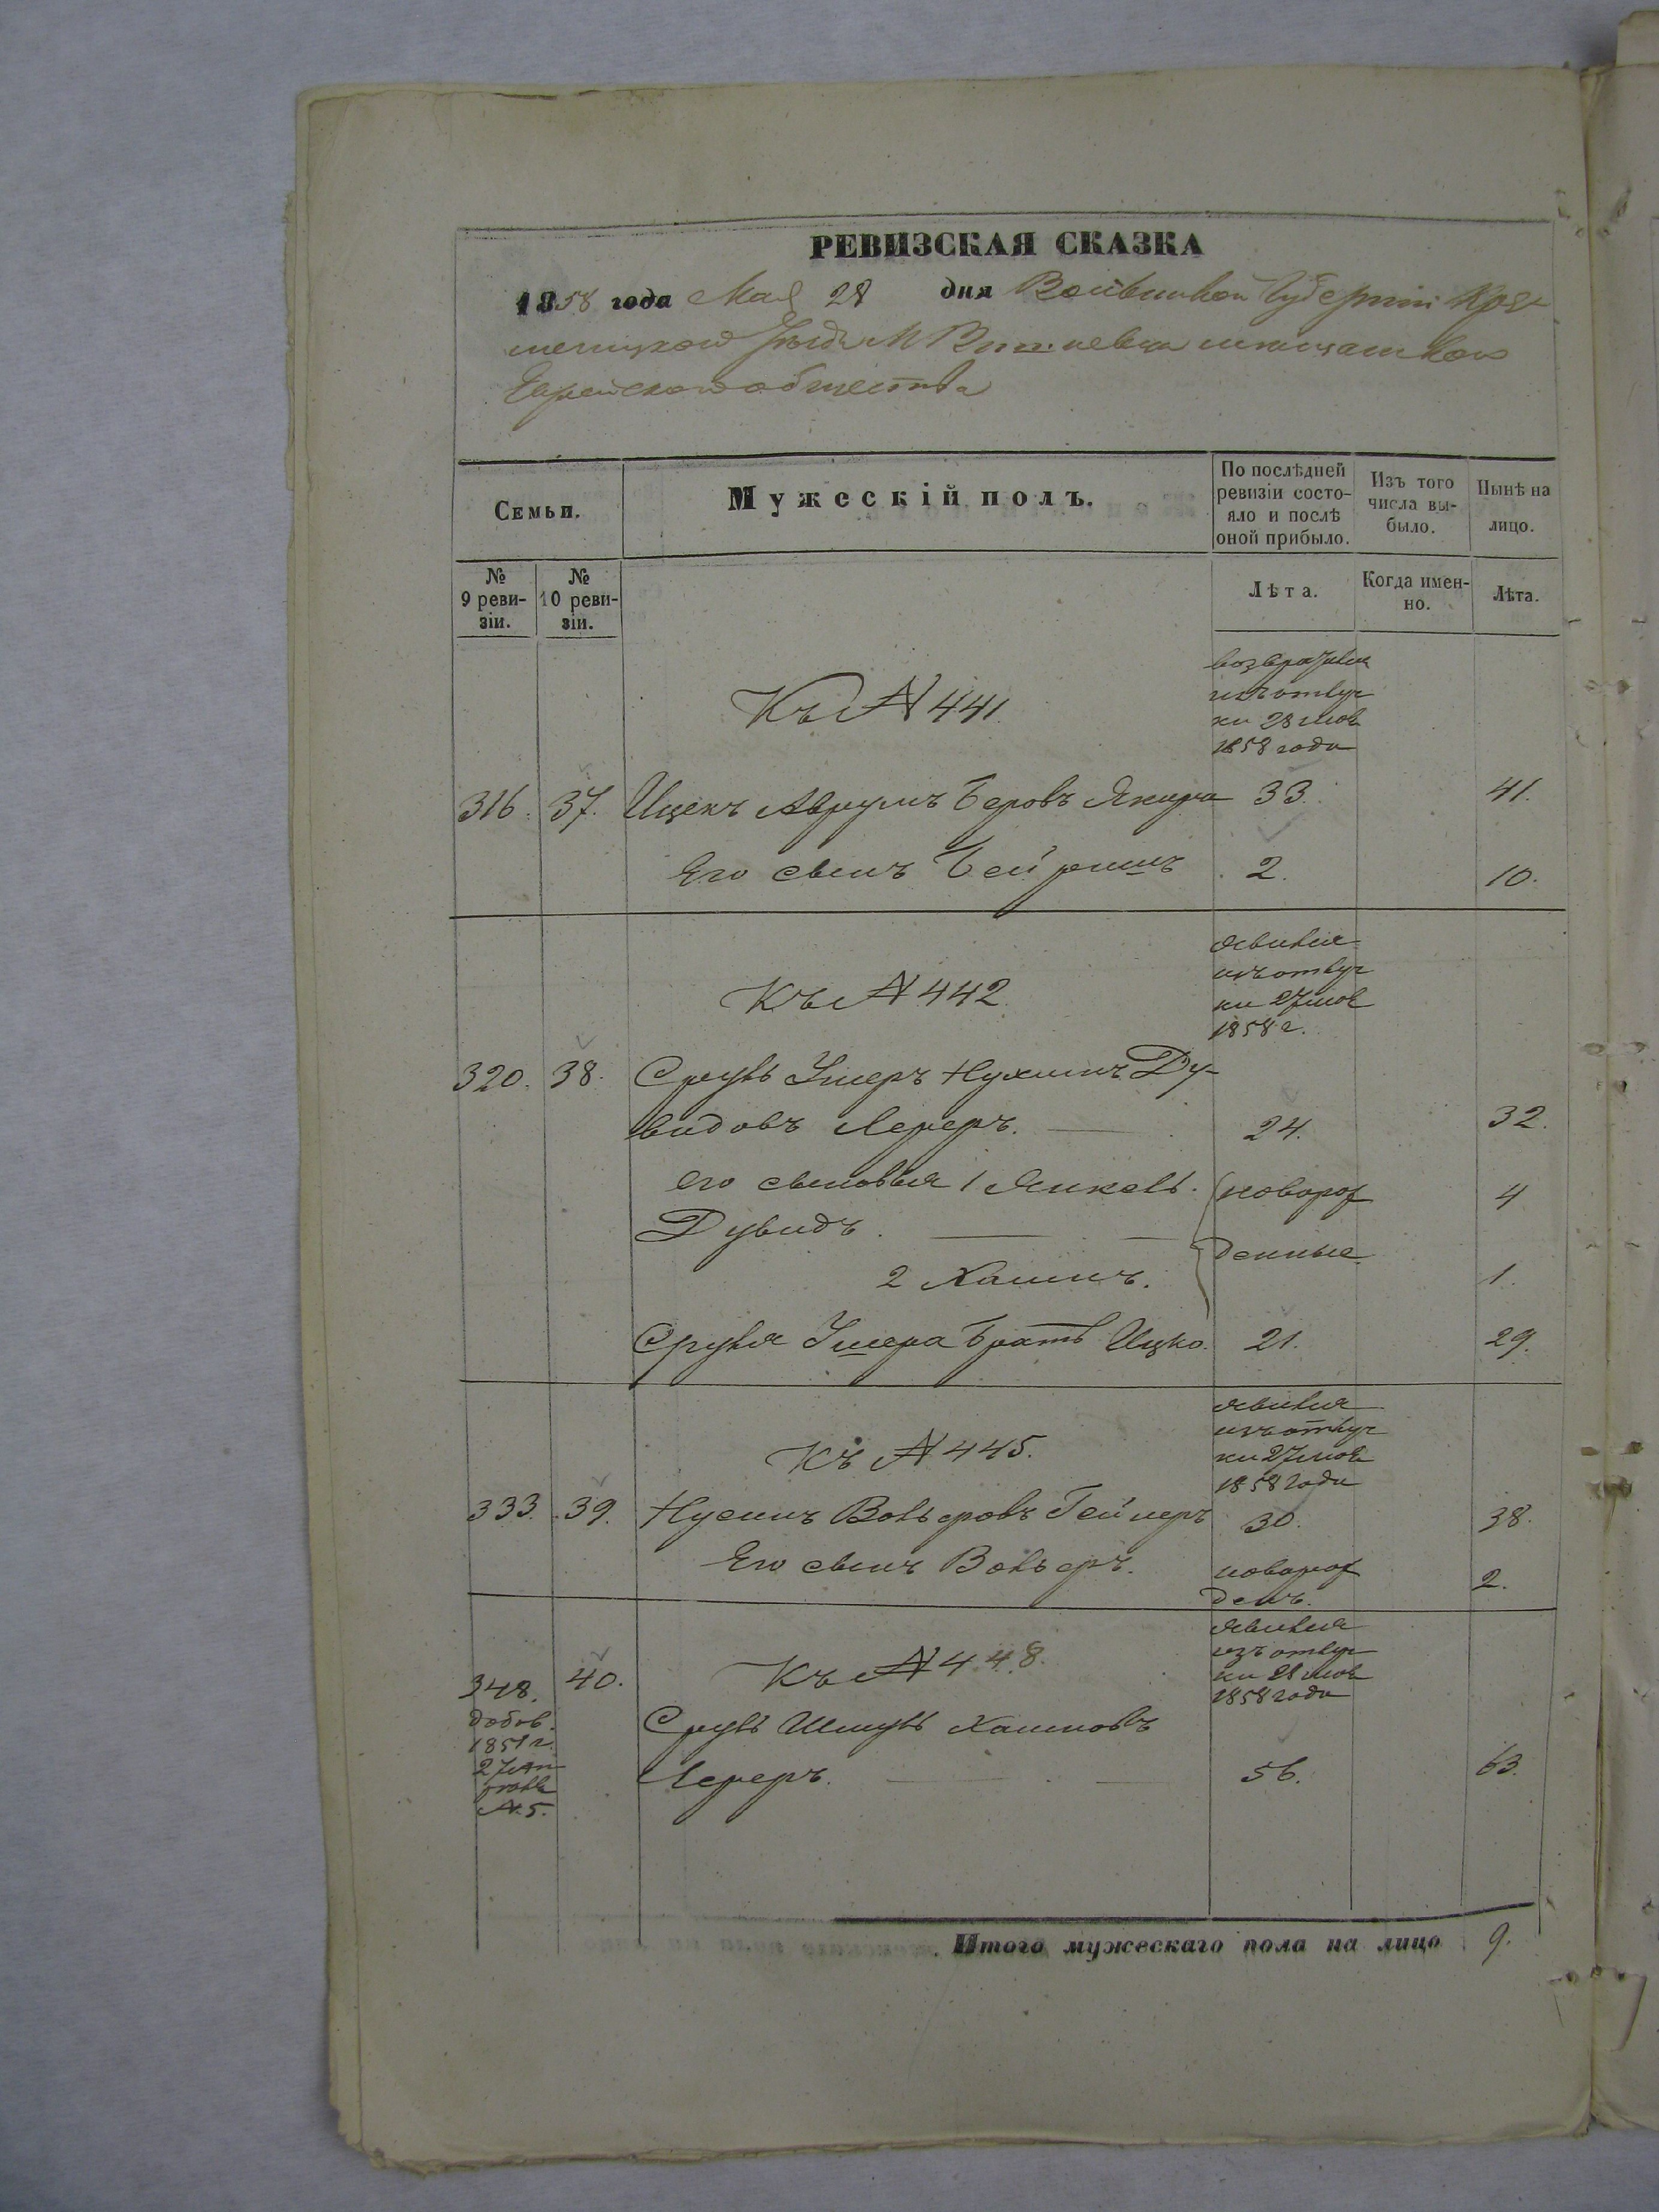 РЕВИЗСКАЯ СКАЗКА
1858 года Мая 28 дня Волынской Губерніи Кре-
менецкого Уезда М Вишневца мещанского
Еврейского общества
Семьи.
Мужескій полъ.
По послѣдней ревизіи состо-яло и послѣ оной прибыло.
Изъ того числа вы-было.
Нынѣ на лицо.
№ 9 реви-зіи.
№ 10 реви-зіи.
Лѣта.
Когда имен-но.
Лѣта.
Къ № 441.
изъ отлуч
ки 28 мая
1858 года
316. 37. Ицекъ Аврумъ Беровъ Якира 33. 41.
Его сынъ Бейришъ 2. 10.
Къ № 442
явился
изъ отлуч
ки 27 мая
1858 г.
320. 38. Сруль Умеръ Нухимъ Ду-
видовъ Лереръ. 24. 32.
его сыновья 1 Янкель новорож 4
Дувидъ денные
2 Хаимъ. 1.
Сруля Умера братъ Ицко. 21. 29.
Къ № 445.
явился
изъ отлуч
ки 27 мая
1858 года
333. 39. Нусинъ Вольфовъ Гейнеръ 30. 38.
Его сынъ Вольфъ. новорож 2.
денъ.
Къ № 448.
явился
изъ отлуч
ки 28 мая
1858 года
348. 40.
добов.
1851 г.
Сруль Шмуль Хаимовъ
Лереръ. 56. 63.
№ 5.
Итого мужескаго пола на лицо 9.